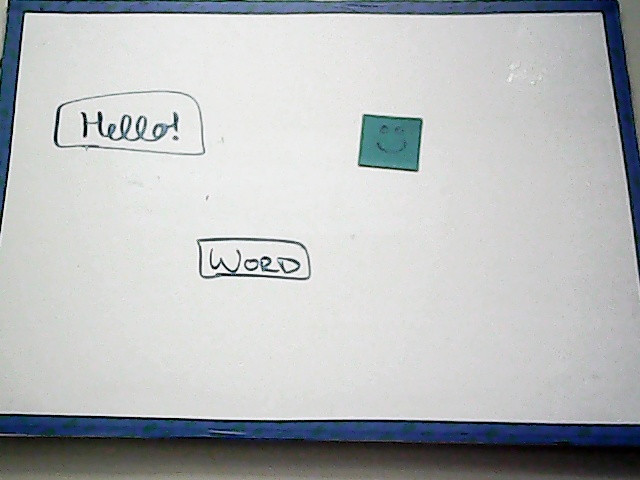 Hello!
WORD